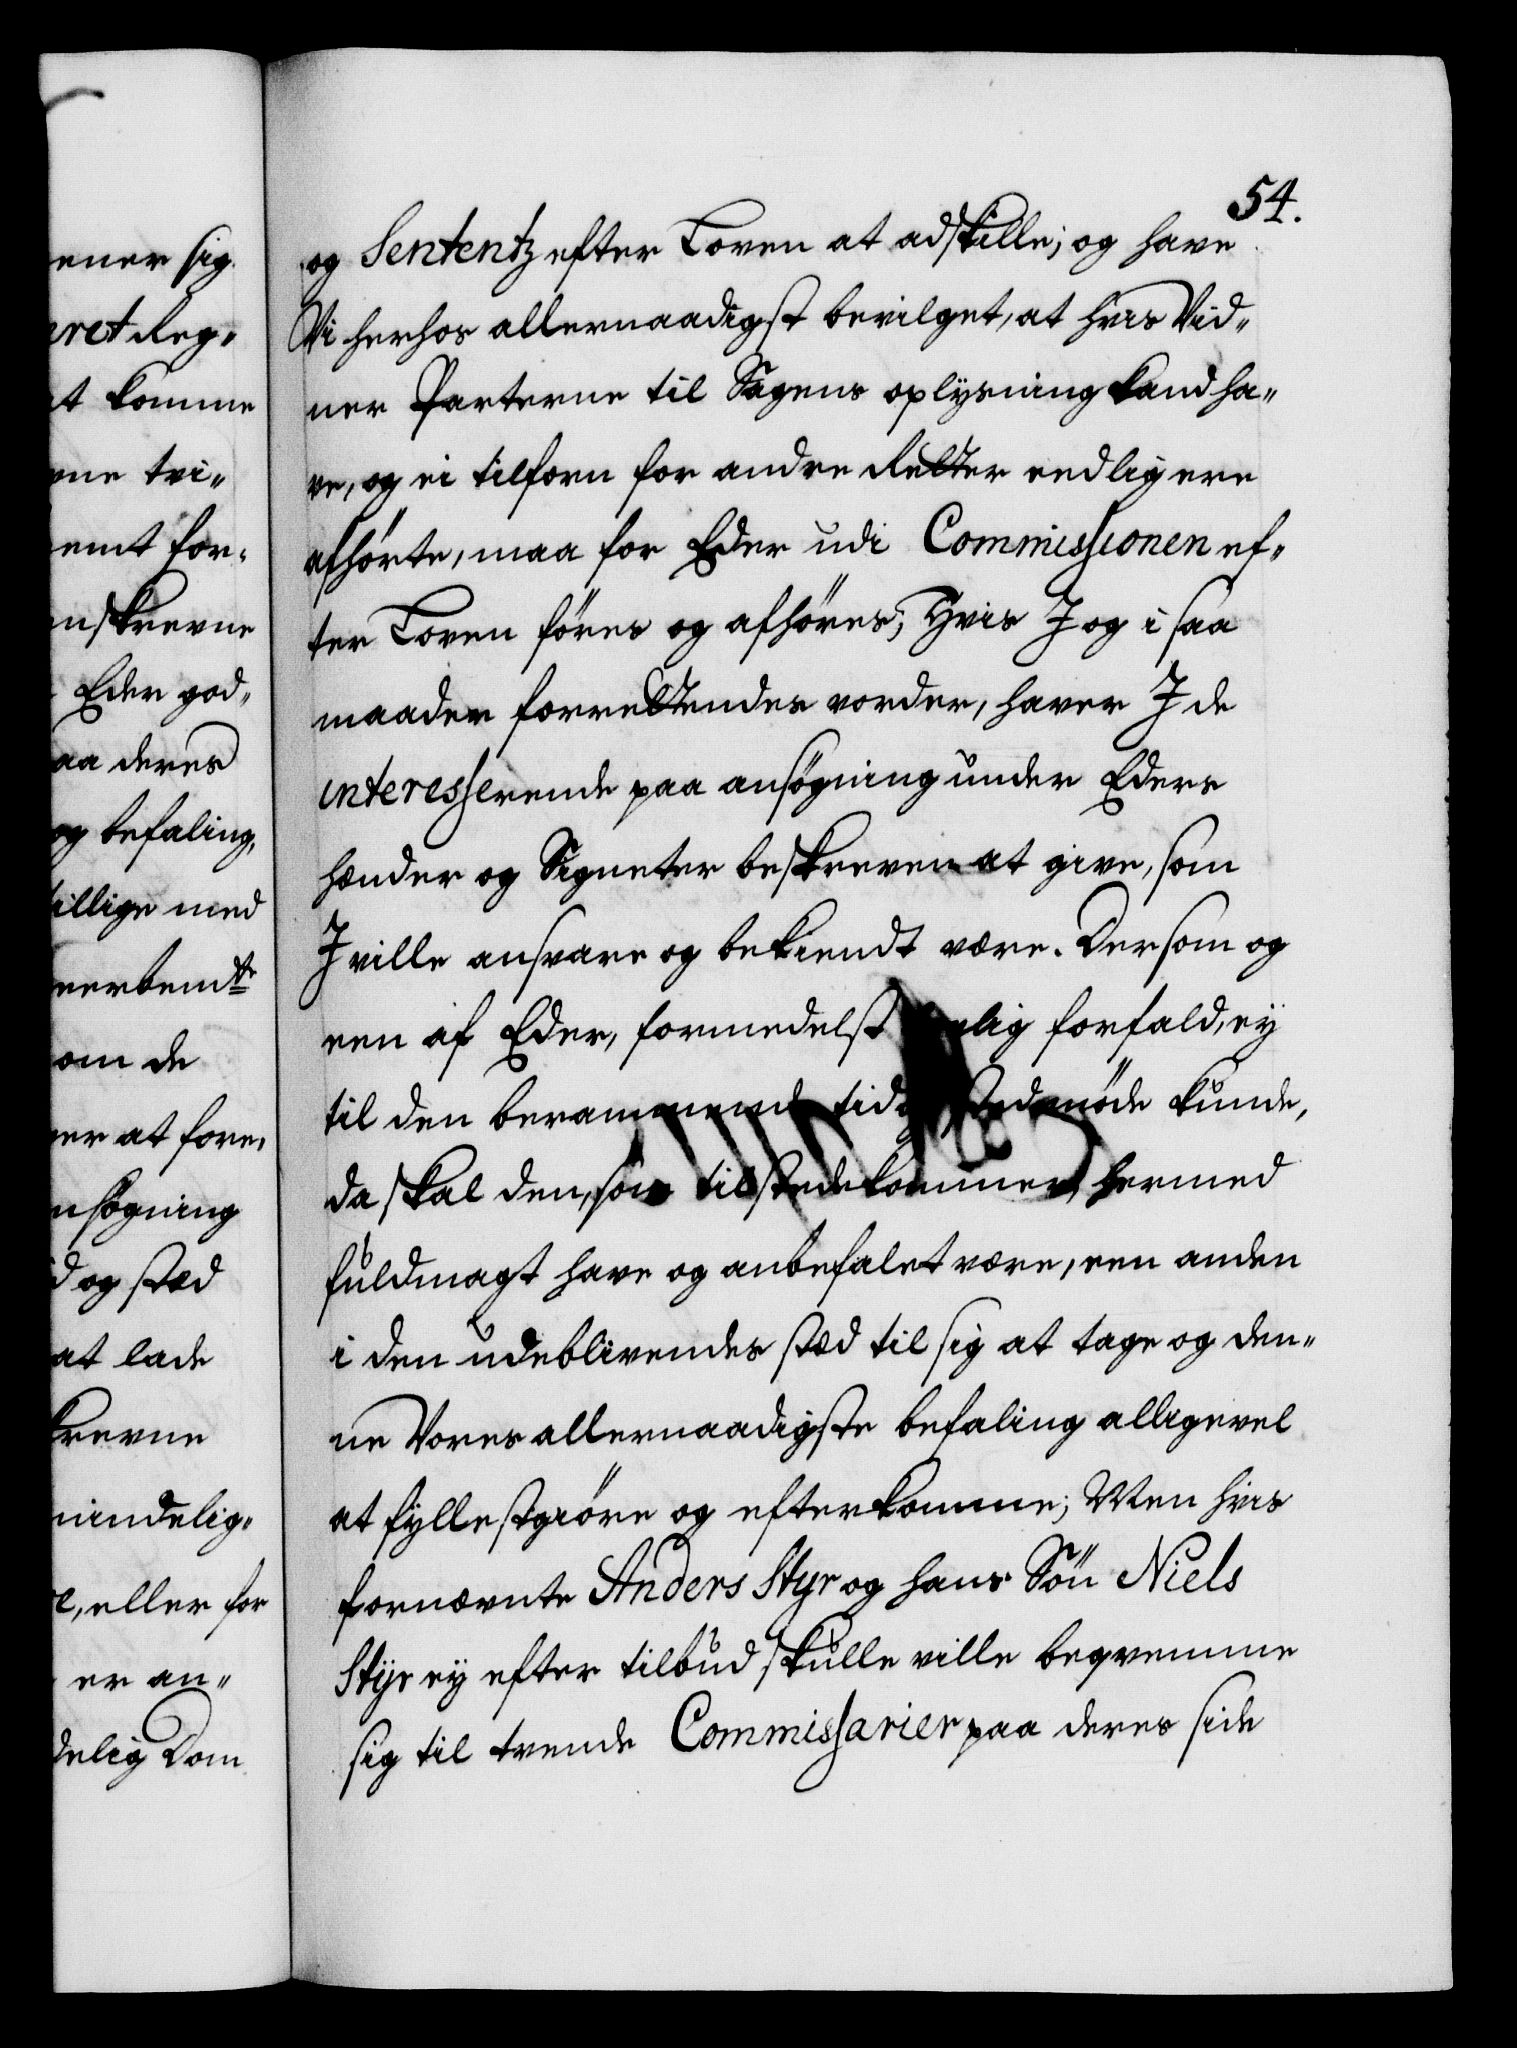 54.
og Sententz efter Loven at adskille; og have
Vi herhos allernaadigst bevilget, at hvis Vid„
ner Parterne til Sagens oplysning kand ha„
ve, og ei tilforn for andre Retter eedligere
afhørte, maa for Eder udi Commissionen ef„
ter Loven føres og afhøres; Hvis I og i saa
maader forrettendes vorder, haver I de
interesserende paa ansøgning under Eders
hænder og Signeter beskreven at give, som
I ville ansvare og bekiendt være. Dersom og
een af Eder, formedelst lovlig forfald, ey
til den berammende tid og sted møde kunde,
da skal den, som tilstede kommer, hermed
fuldmagt have og anbefalet være, een anden
i den udeblivendes stæd til sig at tage og den„
ne Vores allernaadigste befaling alligevel
at fyllestgiøre og efterkomme; Men hvis
fornævnte Anders Styr og hans Søn Niels
Styr ey efter tilbud skulle ville beqvemme
sig til tvende Commissarier paa deres side
ener sig
eret Reg„
t komme
ne tvi„
emt for„
nskrevne
Eder god„
aa deres
og befaling,
tillige med
erbemte
om de
er at fore„
nsøgning
d og stæd
at lade
krevne
mindelig„
e, eller for
er an„
delig Dom